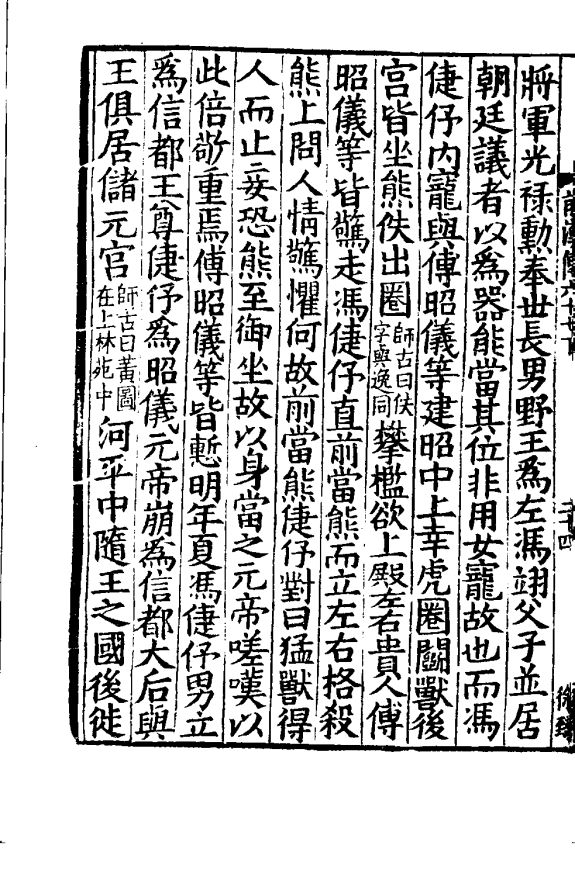 將軍光祿勲奉世長男野王爲左馮翊父子並居
朝廷議者以爲器能當其位非用女寵故也而馮
倢伃内寵與傅昭儀等建昭中上幸虎圈鬭獸後
宫皆坐熊佚出圈師古曰佚字與逸同攀檻欲上殿左右貴人傅
昭儀等皆驚走馮倢伃直前當熊而立左右格殺
熊上問人情驚懼何故前當熊倢伃對曰猛獸得
人而止妾恐熊至御坐故以身當之元帝嗟嘆以
此倍敬重焉傅昭儀等皆慙明年夏馮倢伃男立
爲信都王尊倢伃爲昭儀元帝崩爲信都太后與
王俱居儲元宫師古曰黃圖在上林苑中河平中隨王之國後徙